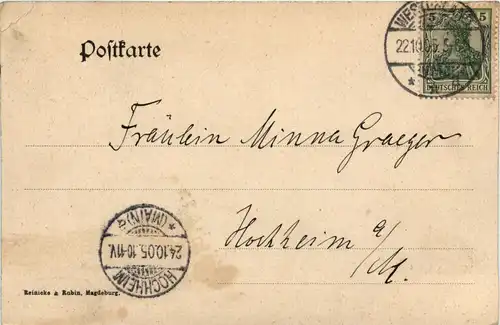 5 5
22.10.05.
DEUTSCHES REICH
Postkarte
Fräulein Minna Graeger
Hochheim a/
M.
HOCHHEIM
24.10.05.10-11V.
* (MAIN) a
Reinicke & Rubin, Magdeburg.